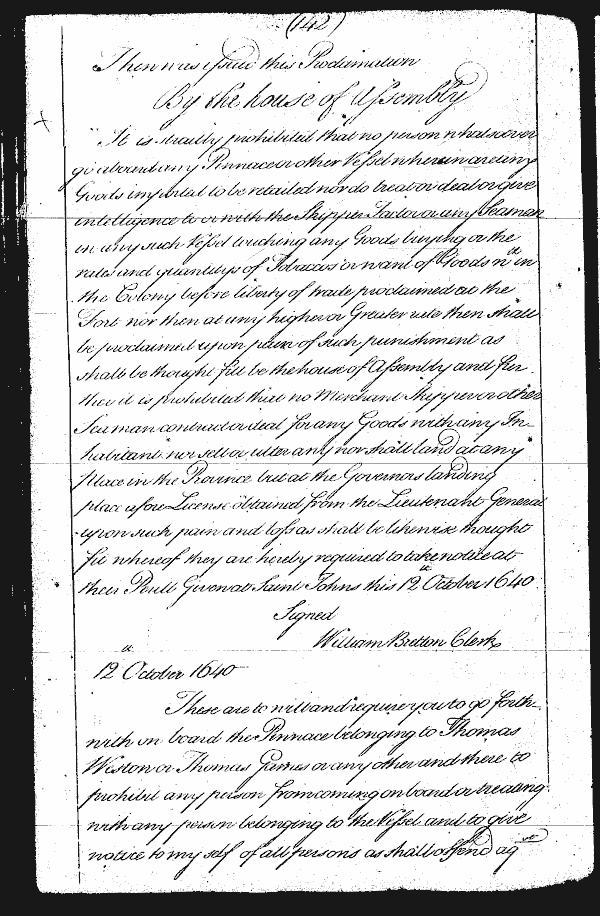 (142)
Then was issued this Proclamation
By the house of Assembly
It is straitly prohibited that no person whatsoever
go aboard any Pinnace or other Vessel wherein are any
Goods imported to be retailed nor do treat or deal or give
intelligence to or with the Skipper Factor or any Seaman
in any such Vessel touching any Goods buying or the
rates and quantitys of Tobaccos or want of Goods wth in
the Colony before liberty of trade proclaimed at the
Fort nor then at any higher or Greater rate then shall
be proclaimed upon pain of such punishment as
shall be thought fitt be the house of Assembly and fur
ther it is prohibited that no Merchant Skipper or other
Seaman contract or deal for any Goods with any In-
habitant nor sell or utter any nor shall land at any
place in the Province but at the Governors landing
place afore License obtained from the Lieutenant General
upon such pain and loss as shall be likewise thought
fit whereof they are hereby required to take notice at
their Perill Given at Saint Johns this 12th October 1640
Signed
William Bretton Clerk
12th October 1640
These are to will and require you to go forth
with on board the Pinnace belonging to Thomas
Weston or Thomas Games or any other and there to
prohibit any person from coming on board or treating
with any person belonging to the Vessel and to give
notice to my self of all persons as shall offend agst